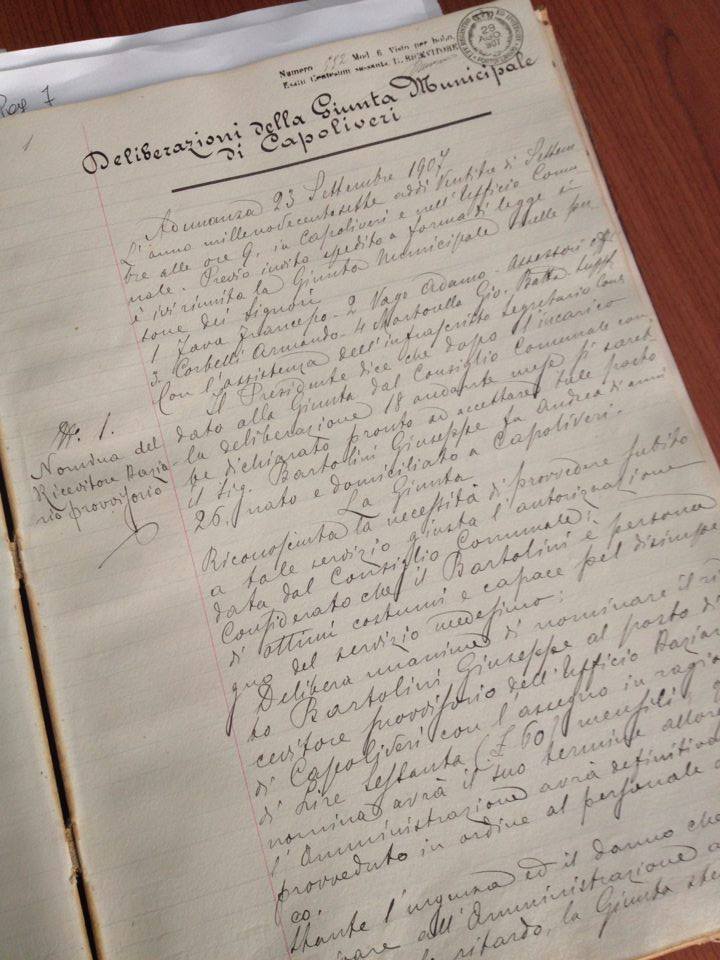 Numero 552 Mod. 6. Visto per bollo,
Esatti Centesimi sessanta IL RICEVITORE
29
AGO
907
1
Deliberazioni della Giunta Municipale
di Capoliveri
Adunanza 23 Settembre 1907
L'anno millenovecentosette addì Ventitre di Settem
bre alle ore 9. in Capoliveri e nell'Ufficio Comu
nale. Previo invito spedito a forma di legge si
è ivi riunita la Giunta Municipale nelle per
sone dei Signori
1 Java Francesco - 2 Vago Adamo - Assessori eff
3. Corbelli Armando - 4 Martorella Gio. Batta Suppl
Con l'assistenza dell'infrascritto Segretario Com
Il Presidente dice che dopo l'incarico
dato alla Giunta dal Consiglio Comunale con
la deliberazione 18 andante mese si sareb
be dichiarato pronto ad accettare tale posto
il Sig. Bartolini Giuseppe fu Andrea di anni
26, nato e domiciliato a Capoliveri.
N. 1.
Nomina del
Ricevitore Dazia
rio provvisorio
La Giunta
Riconosciuta la necessità di provvedere subito
a tale servizio giusta l'autorizzazione
data dal Consiglio Comunale;
Considerato che il Bartolini è persona
di ottimi costumi e capace pel disimpe
gno del servizio medesimo;
Delibera unanime di nominare il ri
to Bartolini Giuseppe al posto di
cevitore provvisorio dell'Ufficio Dazia
di Capoliveri con l'assegno in ragio
di Lire Sessanta (£ 60) mensili;
nomina avrà il suo termine allor
l'Amministrazione avrà definitiva
provveduto in ordine al personale
co.
Stante l'urgenza ed il danno che
all'Amministrazione
ritardo, la Giunta ste